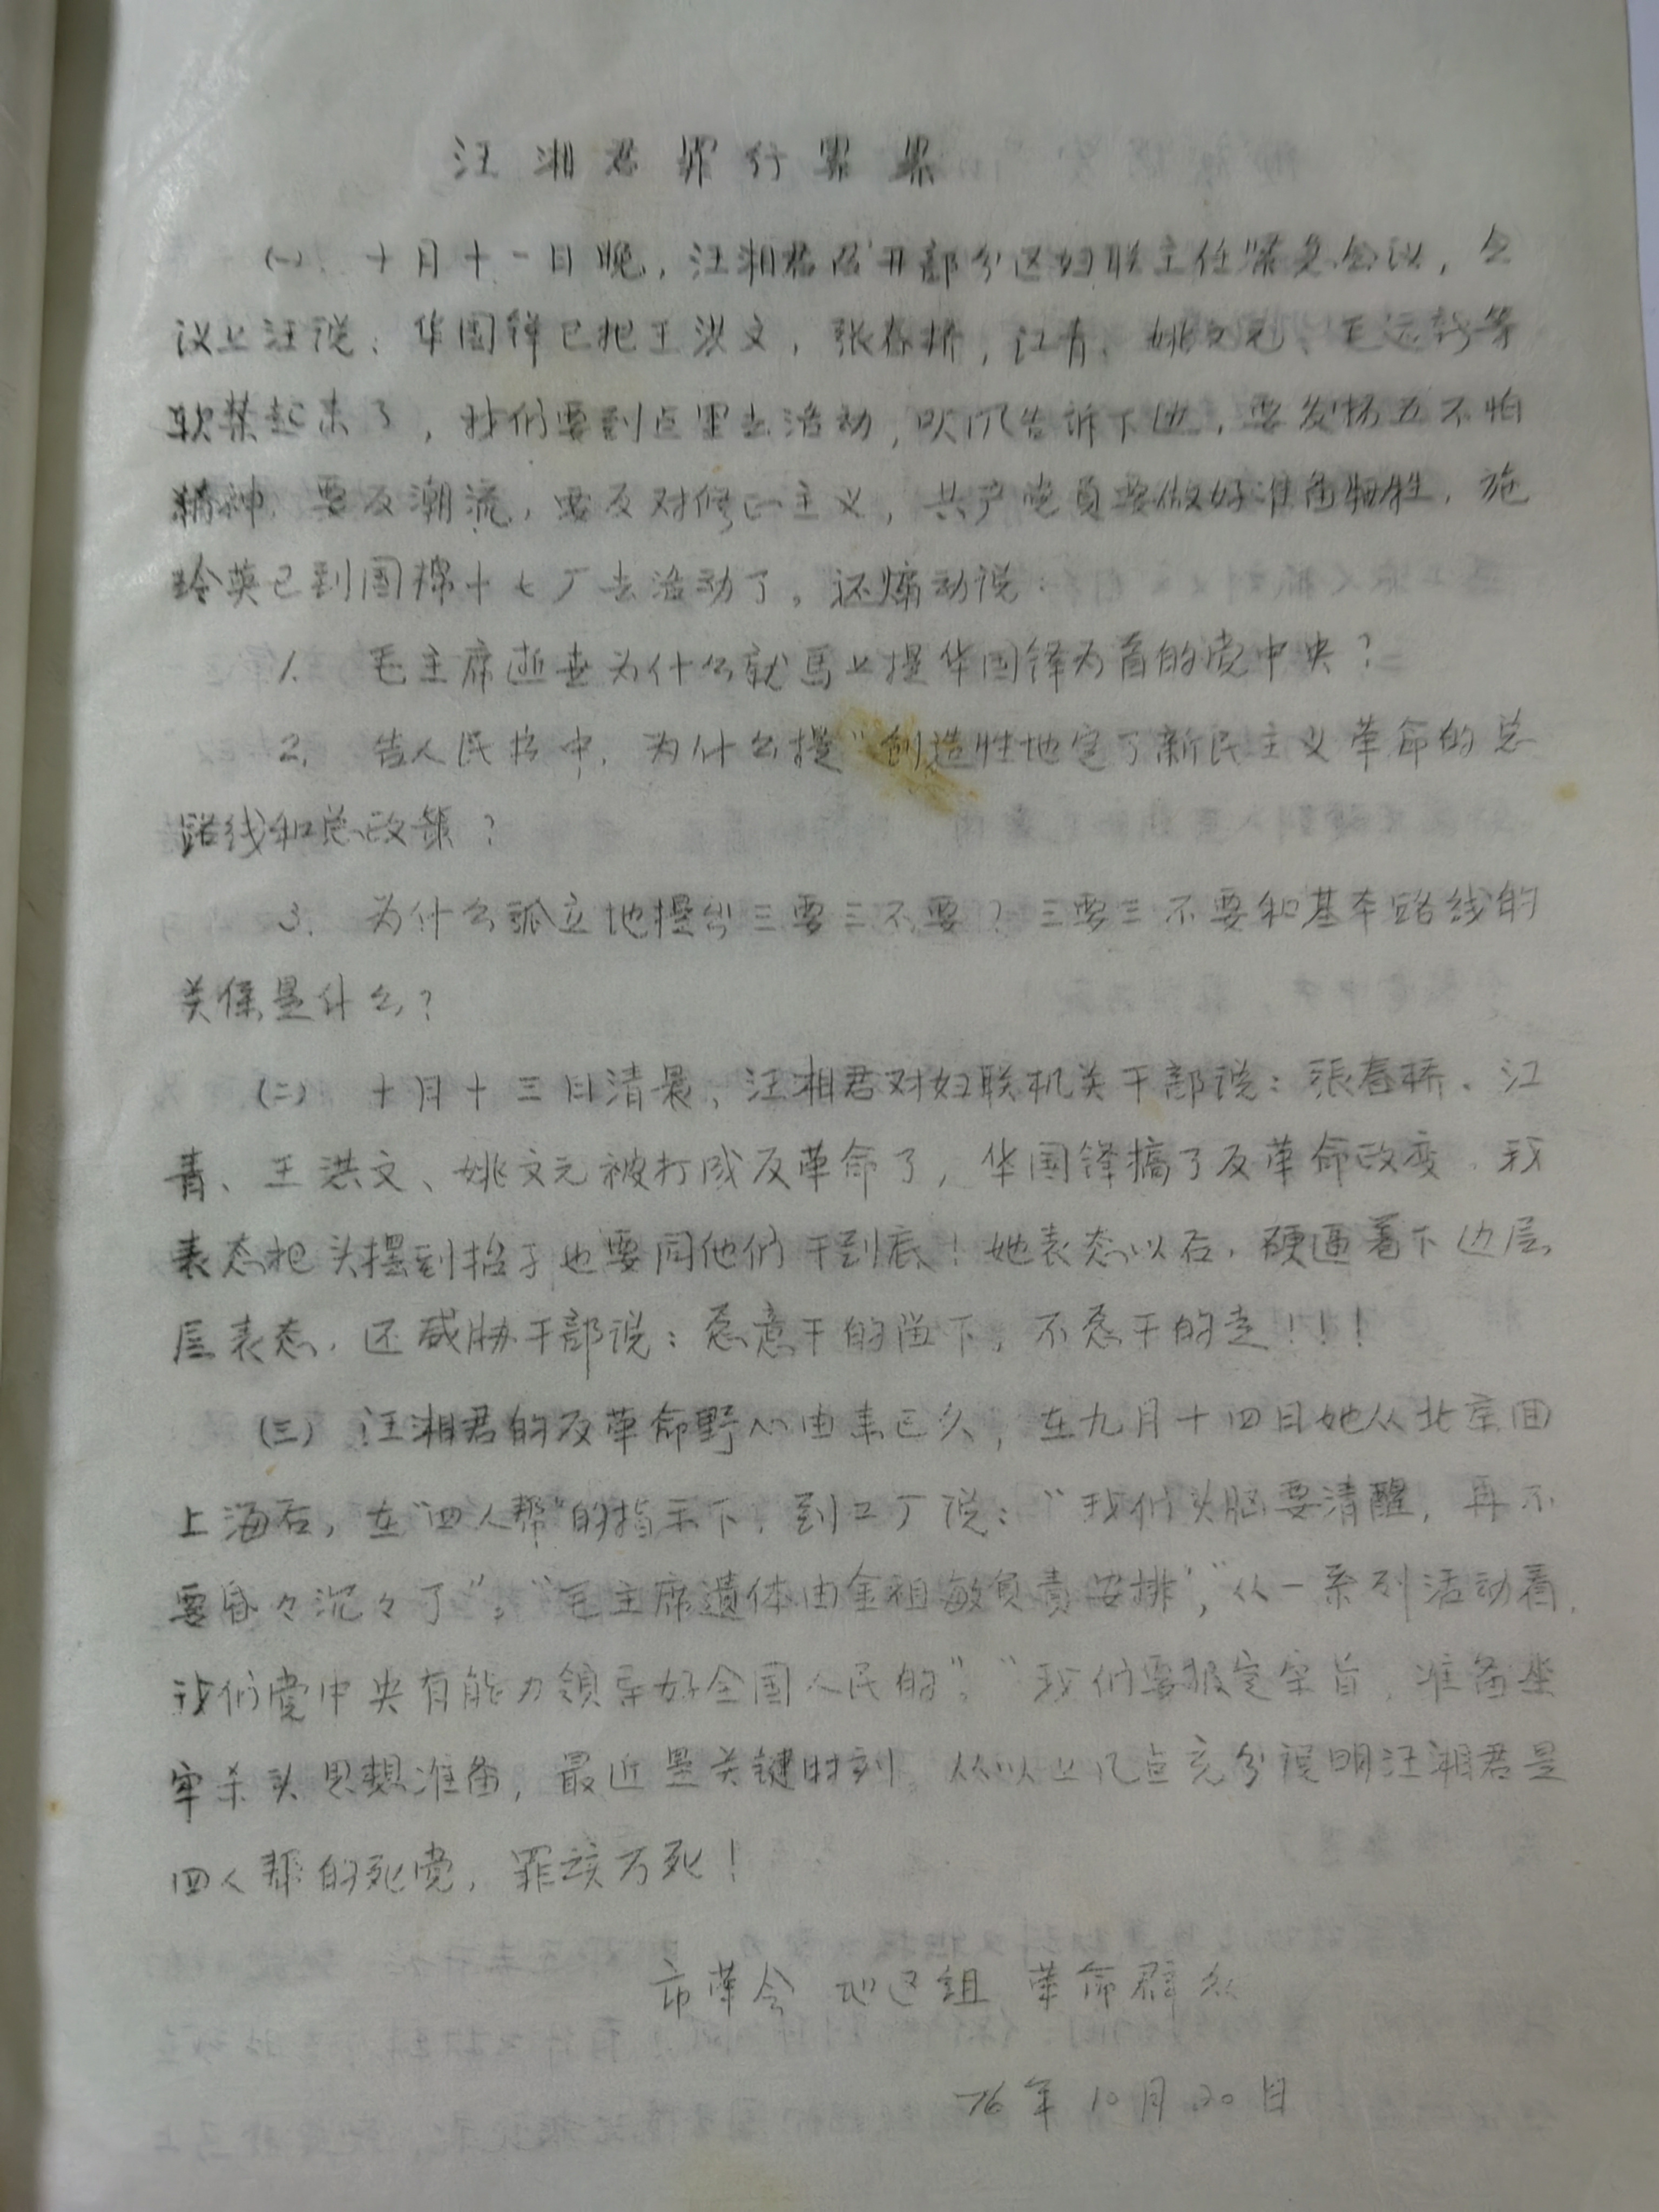 汪湘君罪行累累
(一)、十月十一日晚，汪湘君召开部分区妇联主任紧急会议，会
议上汪说：华国锋已把王洪文，张春桥，江青、姚文元、毛远新等
软禁起来了，我们要到区里去活动，吹风告诉下边，要发扬五不怕
精神，要反潮流，要反对修正主义，共产党员要做好准备牺牲，施
玲英已到国棉十七厂去活动了。还煽动说：
1. 毛主席逝世为什么就马上提华国锋为首的党中央？
2. 告人民书中，为什么提“创造性地定了新民主义革命的总
路线和总政策？
3. 为什么孤立地提出三要三不要？三要三不要和基本路线的
关系是什么？
(二) 十月十三日清晨，汪湘君对妇联机关干部说：张春桥、江
青、王洪文、姚文元被打成反革命了，华国锋搞了反革命政变，我
表态把头摆到抬子也要同他们干到底！她表态以后，硬逼着下边层
层表态，还威胁干部说：愿意干的留下，不愿干的走！！！
(三) 汪湘君的反革命野心由来已久，在九月十四日她从北京回
上海后，在“四人帮”的指示下，到工厂说：“我们头脑要清醒，再不
要昏々沉々了”；“毛主席遗体由金祖敏负责安排”，“从一系列活动看，
我们党中央有能力领导好全国人民的”。“我们要报定宗旨，准备坐
牢杀头思想准备，最近是关键时刻。从以上几点充分说明汪湘君是
四人帮的死党，罪该万死！
市革会 地区组 革命群众
76年10月20日